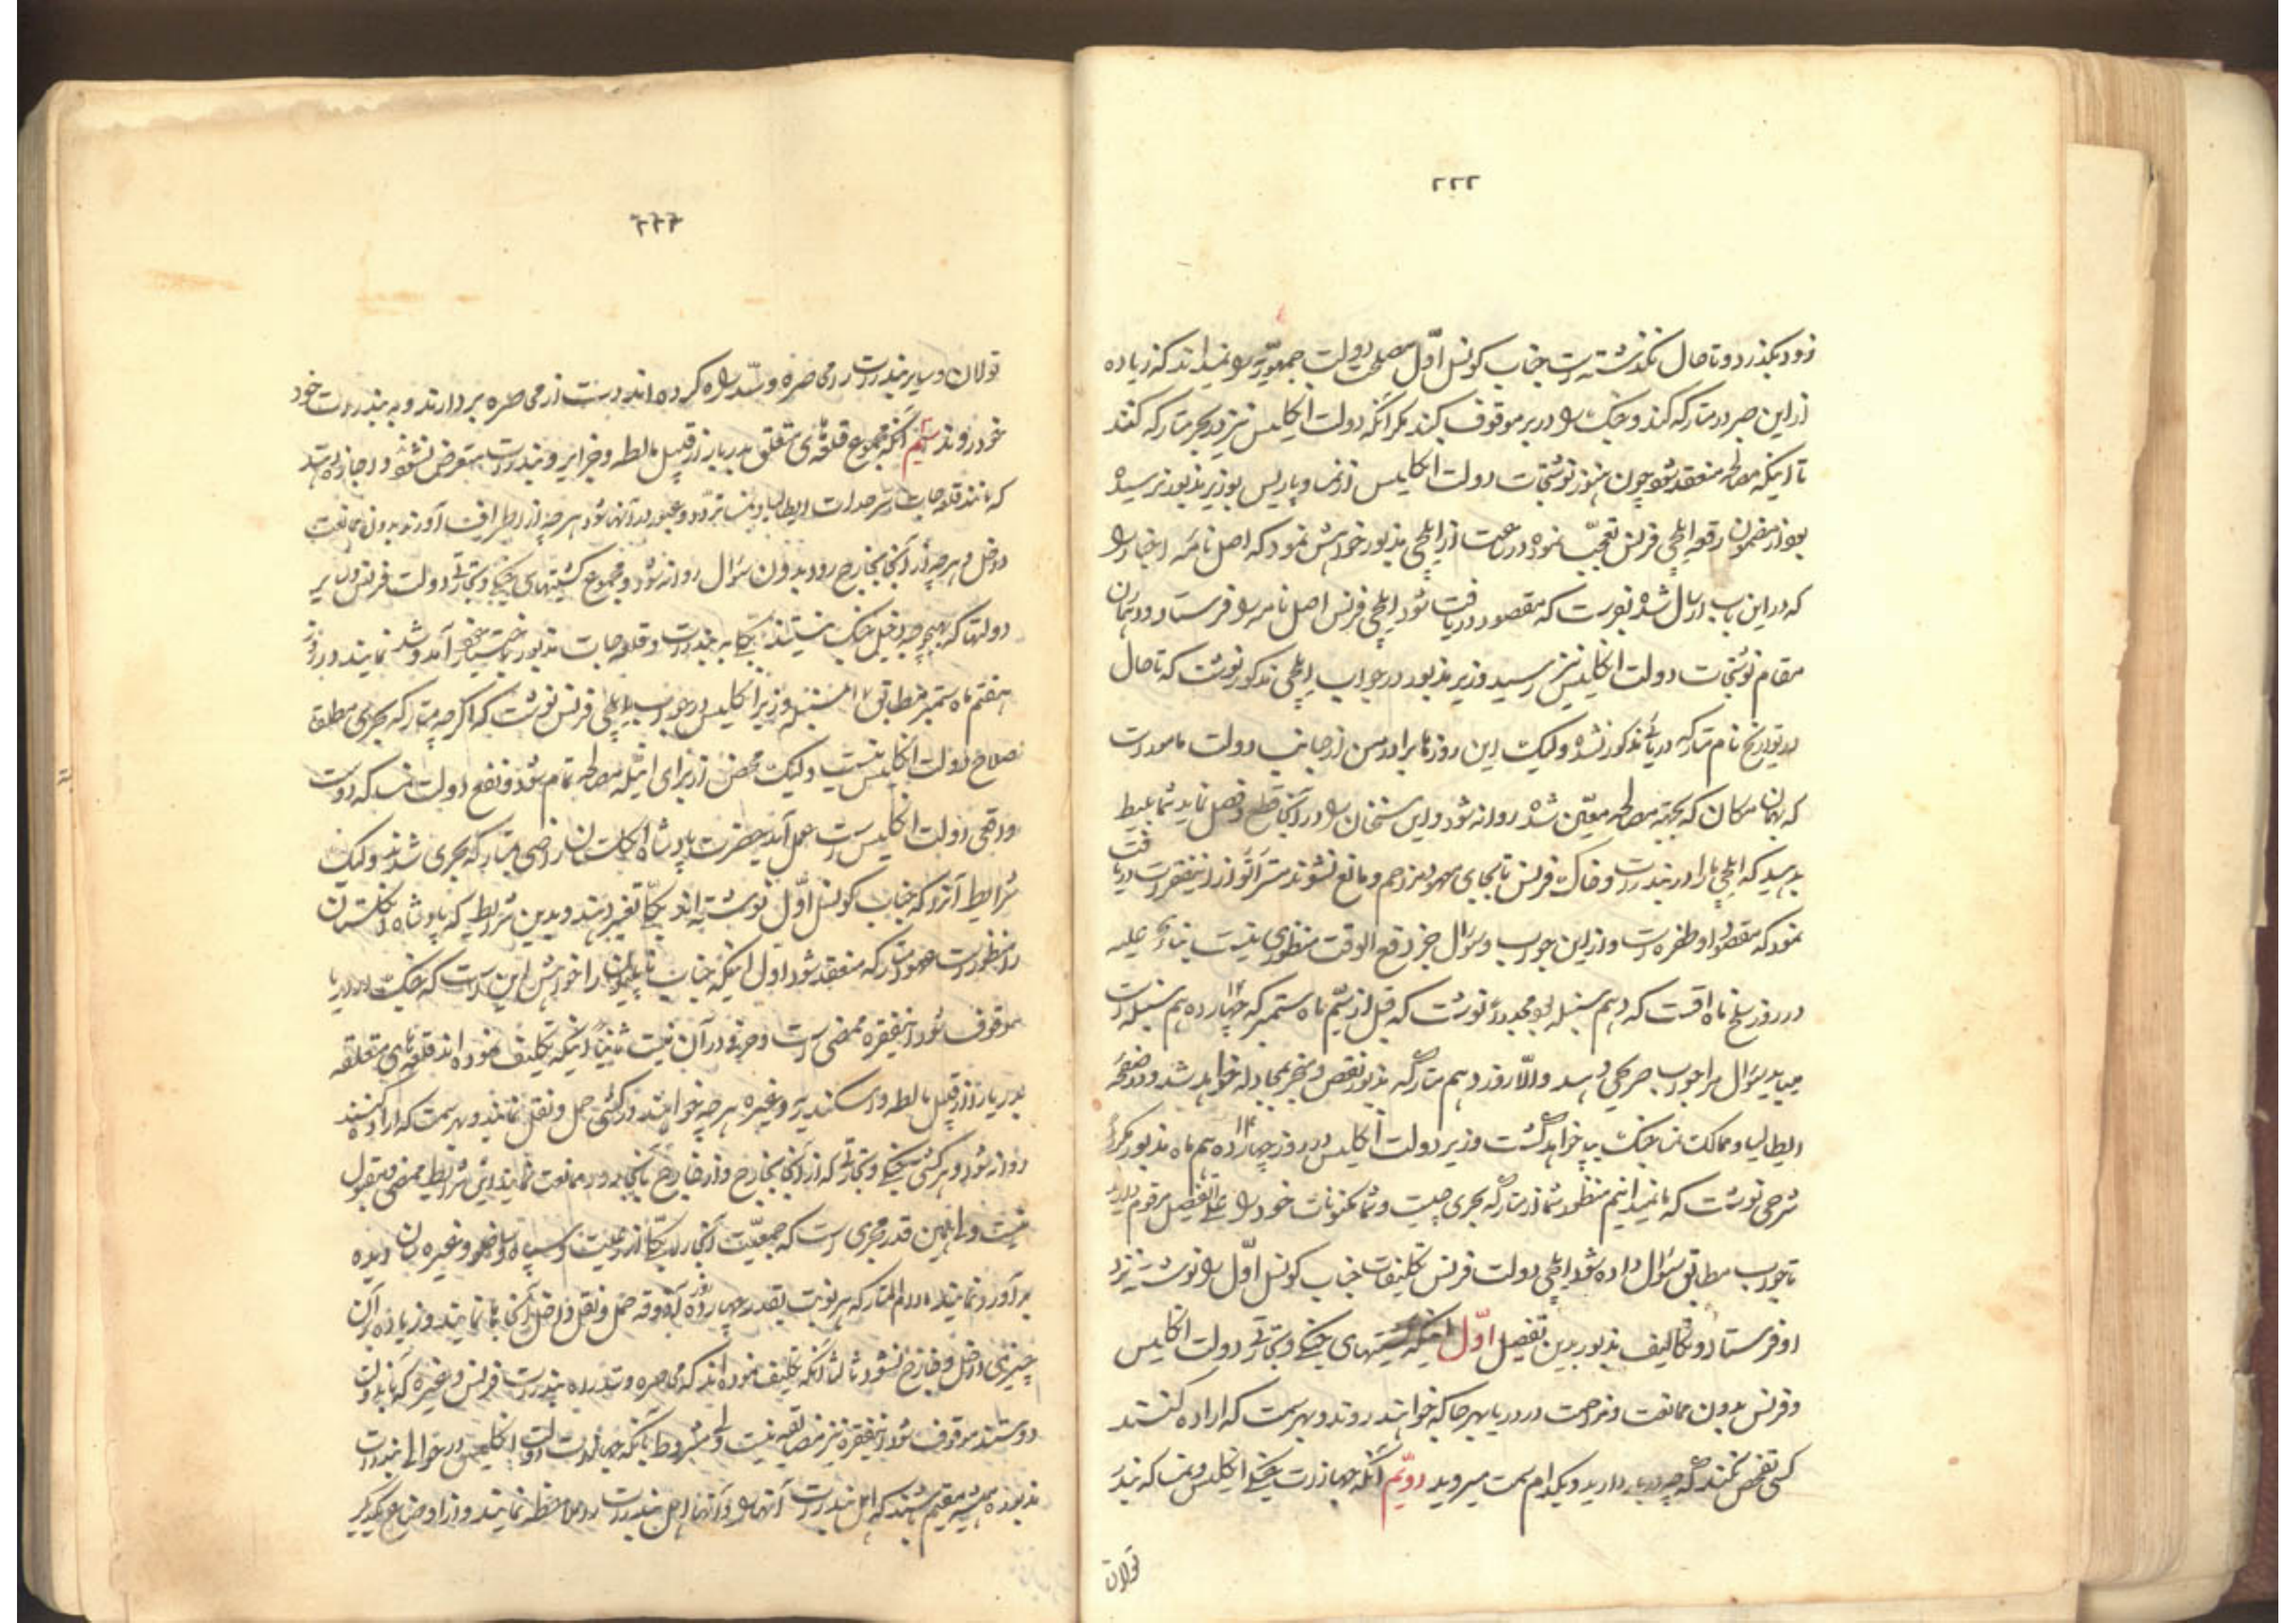 ۲۲۲
زود بگذرد و تا حال نگذشته است جناب کونسل اوّل مصلحت دولت جمهوریّه را نمیداند که زیاده
از این صبر در متارکه کند و جنک را در بر موقوف کند مگر آنکه دولت انگلیس نیز در بحر متارکه کنند
تا اینکه مصالحه منعقد شود چون هنوز نوشتجات دولت انگلیس از نمسا و پاریس بوزیر مذبور نرسیده
بود از مضمون رقعه ایلچی فرنس تعجّب نموده در ساعت از ایلچی مذبور خواهش نمود که اصل نامه اخبار را
که در این باب ارسال شده بود است که مقصود دریافت شود ایلچی فرنس اصل نامه را فرستاد و در همان
مقام نوشتجات دولت انگلیس نیز رسید وزیر مذبور در جواب ایلچی مذکور نوشت که تا حال
در تواریخ نام متارکه دریائی مذکور نشده ولیک این روزها برادر من از جانب دولت مامور است
که بهمان مکان که بجهة مصالحه معیّن شده روانه شود و این سخنان را در آنجا قطع و فصل نماید شما
بدهید که ایلچی ما را در بندرات و خاک فرنس تا بجای معهود مزاحم و مانع نشوند مستر اتو از این فقرات دریافت
نمود که مقصود او طفره است و از این جواب و سؤال جز دفع الوقت منظوری نیست بناءً علیه
در روز سلخ ماه اقست که دهم سنبله بود مجدداً نوشت که قبل از سیّم ماه ستمبر که چهارده هم سنبله است
میباید سؤال مرا جواب صریحی دهید و الّا روز دهم متارکه مذبور نقض و منجر بمجادله خواهد شد و در صفحه
ایطالیا و ممالک نمسا جنک بپا خواهد گشت وزیر دولت انگلیس در روز چهارده هم ماه مذبور مکرراً
شرحی نوشت که ما نمیدانیم منظور شما از متارکه بحری چیست و شما مکنونات خود را علی التفصیل مرقوم دارید
تا جواب مطابق سؤال داده شود ایلچی دولت فرنس تکلیفات جناب کونسل اوّل را نوشته نزد
او فرستاد و تکالیف مذبور بدین تفصیل اوّل اینکه کشتیهای جنگی و تجارتی دولت انگلیس
و فرنس بدون ممانعت و مزاحمت در دریا بهر جا که خواهند روند و بهر سمت که اراده کنند
کسی تفحص نکند که چه در بار دارید و بکدام سمت میروید دویّم آنکه جهازات جنگی انگلیس و نمسا که بندر
تولان
۲۲۳
تولان و سایر بندرات را محاصره و سدّ راه کرده اند دست از محاصره بردارند و به بندرات خود
خود روند سیّم آنکه مجموع قلعه های متعلق بدریا از قبیل مالطه و جزایر و بندرات متعرض نشوند و اجازه باشد
که مانند قلعه جات سرحدات ایطالیا و نمسا تردّد و عبور بدانها شود هر چه از اطراف آورند بدون ممانعت
داخل و هر چه از آنجا بخارج رود بدون سؤال روانه شود و مجموع کشتیهای جنگی و تجارتی دولت فرنس و سایر
دولتها که بهیچوجه دخیل جنک نیستند بکلی به بندرات و قلعه جات مذبور باختیار خود آمد و شد نمایند در روز
هفتم ماه ستمبر مطابق ۱۷ سنبله وزیر انگلیس در جواب ایلچی فرنس نوشت که اگر چه متارکه بحری مطلقا
بصلاح دولت انگلیس نیست ولیک محض از برای اینکه مصالحه تمام شود و نفع دولت نمسا که دوست
واقعی دولت انگلیس است بعمل آید حضرت پادشاه انگلستان راضی بمتارکه بحری شدند ولیک
شرایط آنرا که جناب کونسل اوّل نوشته اند بکلّی تغییر دهند و بدین شرایط که پادشاه انگلستان
را منظور است عهد متارکه منعقد شود اول اینکه جناب ناپلیون را خواهش این است که جنک در دریا
موقوف شود این فقره ممضی است و حرفی در آن نیست ثانیاً اینکه تکلیف نموده اند قلعه های متعلقه
بدریا از قبیل مالطه و اسکندریه و غیره هر چه خواهند در کشتی حمل و نقل نمایند و بهر سمت که اراده کنند
روانه شود و هر کشتی جنگی و تجارتی که از آنجا بخارج و از خارج بآنجا رود ممانعت ننمایند این شرایط ممضی و مقبول
نیست و همین قدر مجری است که جمعیّت آنجا را بکلی از رعیّت و سپاه و ساخلو و غیره سان دیده
برآورد نمایند مادام المتارکه هر نوبت بقدر چهارده روزه آذوقه حمل و نقل و داخل آنجا ها نمایند و زیاده بر آن
چیزی داخل و خارج نشود ثالثاً آنکه تکلیف نموده اند که محاصره و سدّ راه بندرات فرنس و غیره که با دولت
دوستند موقوف شود این فقره نیز مضایقه نیست ولی مشروط بآنکه جهازات دولت انگلیس در حوالی بندرات
مذبوره همیشه مقیم باشند که اهل بندرات آنها را و آنها اهل بندرات را ملاحظه نمایند و از اوضاع یکدیگر